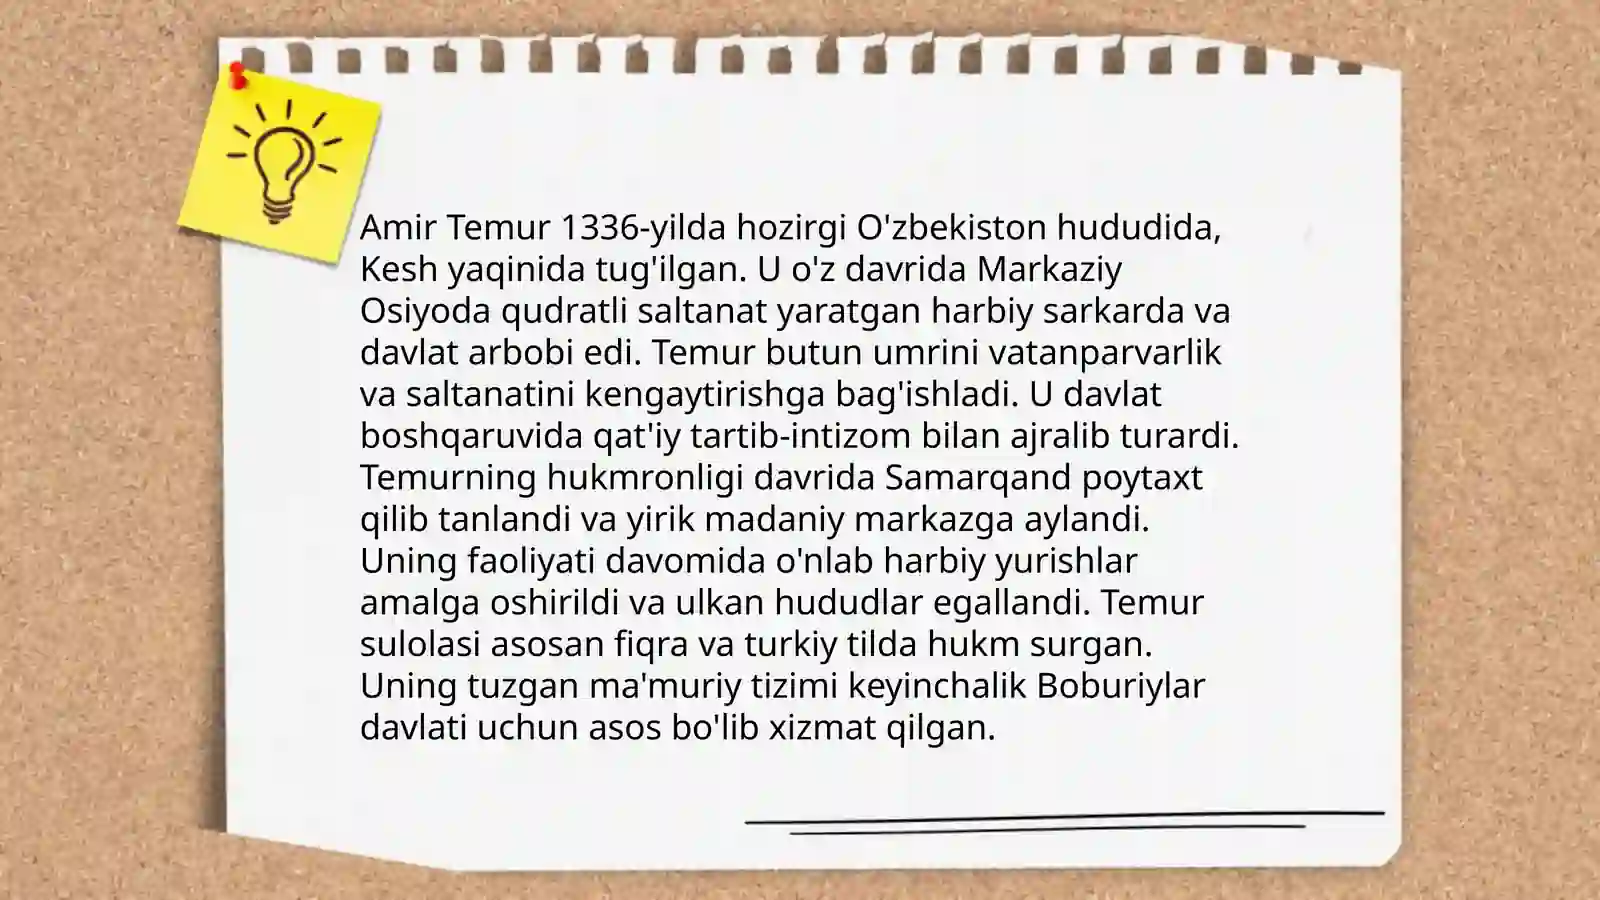 Amir Temur 1336-yilda hozirgi O'zbekiston hududida,
Kesh yaqinida tug'ilgan. U o'z davrida Markaziy
Osiyoda qudratli saltanat yaratgan harbiy sarkarda va
davlat arbobi edi. Temur butun umrini vatanparvarlik
va saltanatini kengaytirishga bag'ishladi. U davlat
boshqaruvida qat'iy tartib-intizom bilan ajralib turardi.
Temurning hukmronligi davrida Samarqand poytaxt
qilib tanlandi va yirik madaniy markazga aylandi.
Uning faoliyati davomida o'nlab harbiy yurishlar
amalga oshirildi va ulkan hududlar egallandi. Temur
sulolasi asosan fiqra va turkiy tilda hukm surgan.
Uning tuzgan ma'muriy tizimi keyinchalik Boburiylar
davlati uchun asos bo'lib xizmat qilgan.